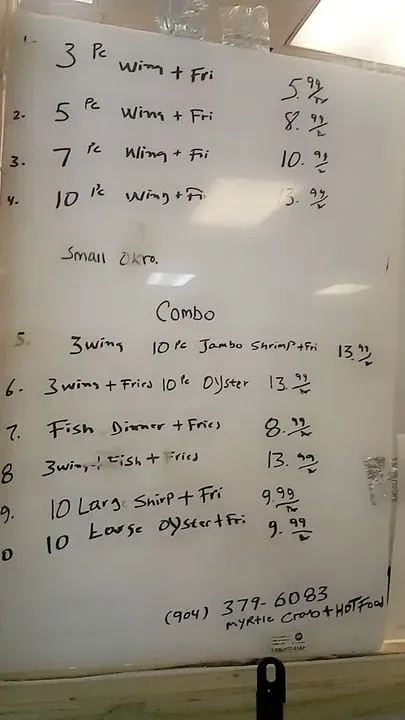 1. 3 Pc Wing + Fri 5.99/
2. 5 Pc Wing + Fri 8.99/
3. 7 Pc Wing + Fri 10.99/
4. 10 Pc Wing + Fri 13.99/
Small Okro.
Combo
5. 3 wing 10 Pc Jambo Shrimp + Fri 13.99/
6. 3 wing + Fries 10 Pc Oyster 13.99/
7. Fish Dinner + Fries 8.99/
8 3 wing + Fish + Fries 13.99/
9. 10 Larg Shirp + Fri 9.99/
0 10 Large Oyster + Fri 9.99/
(904) 379-6083
Myrtle Crab + HOT Food